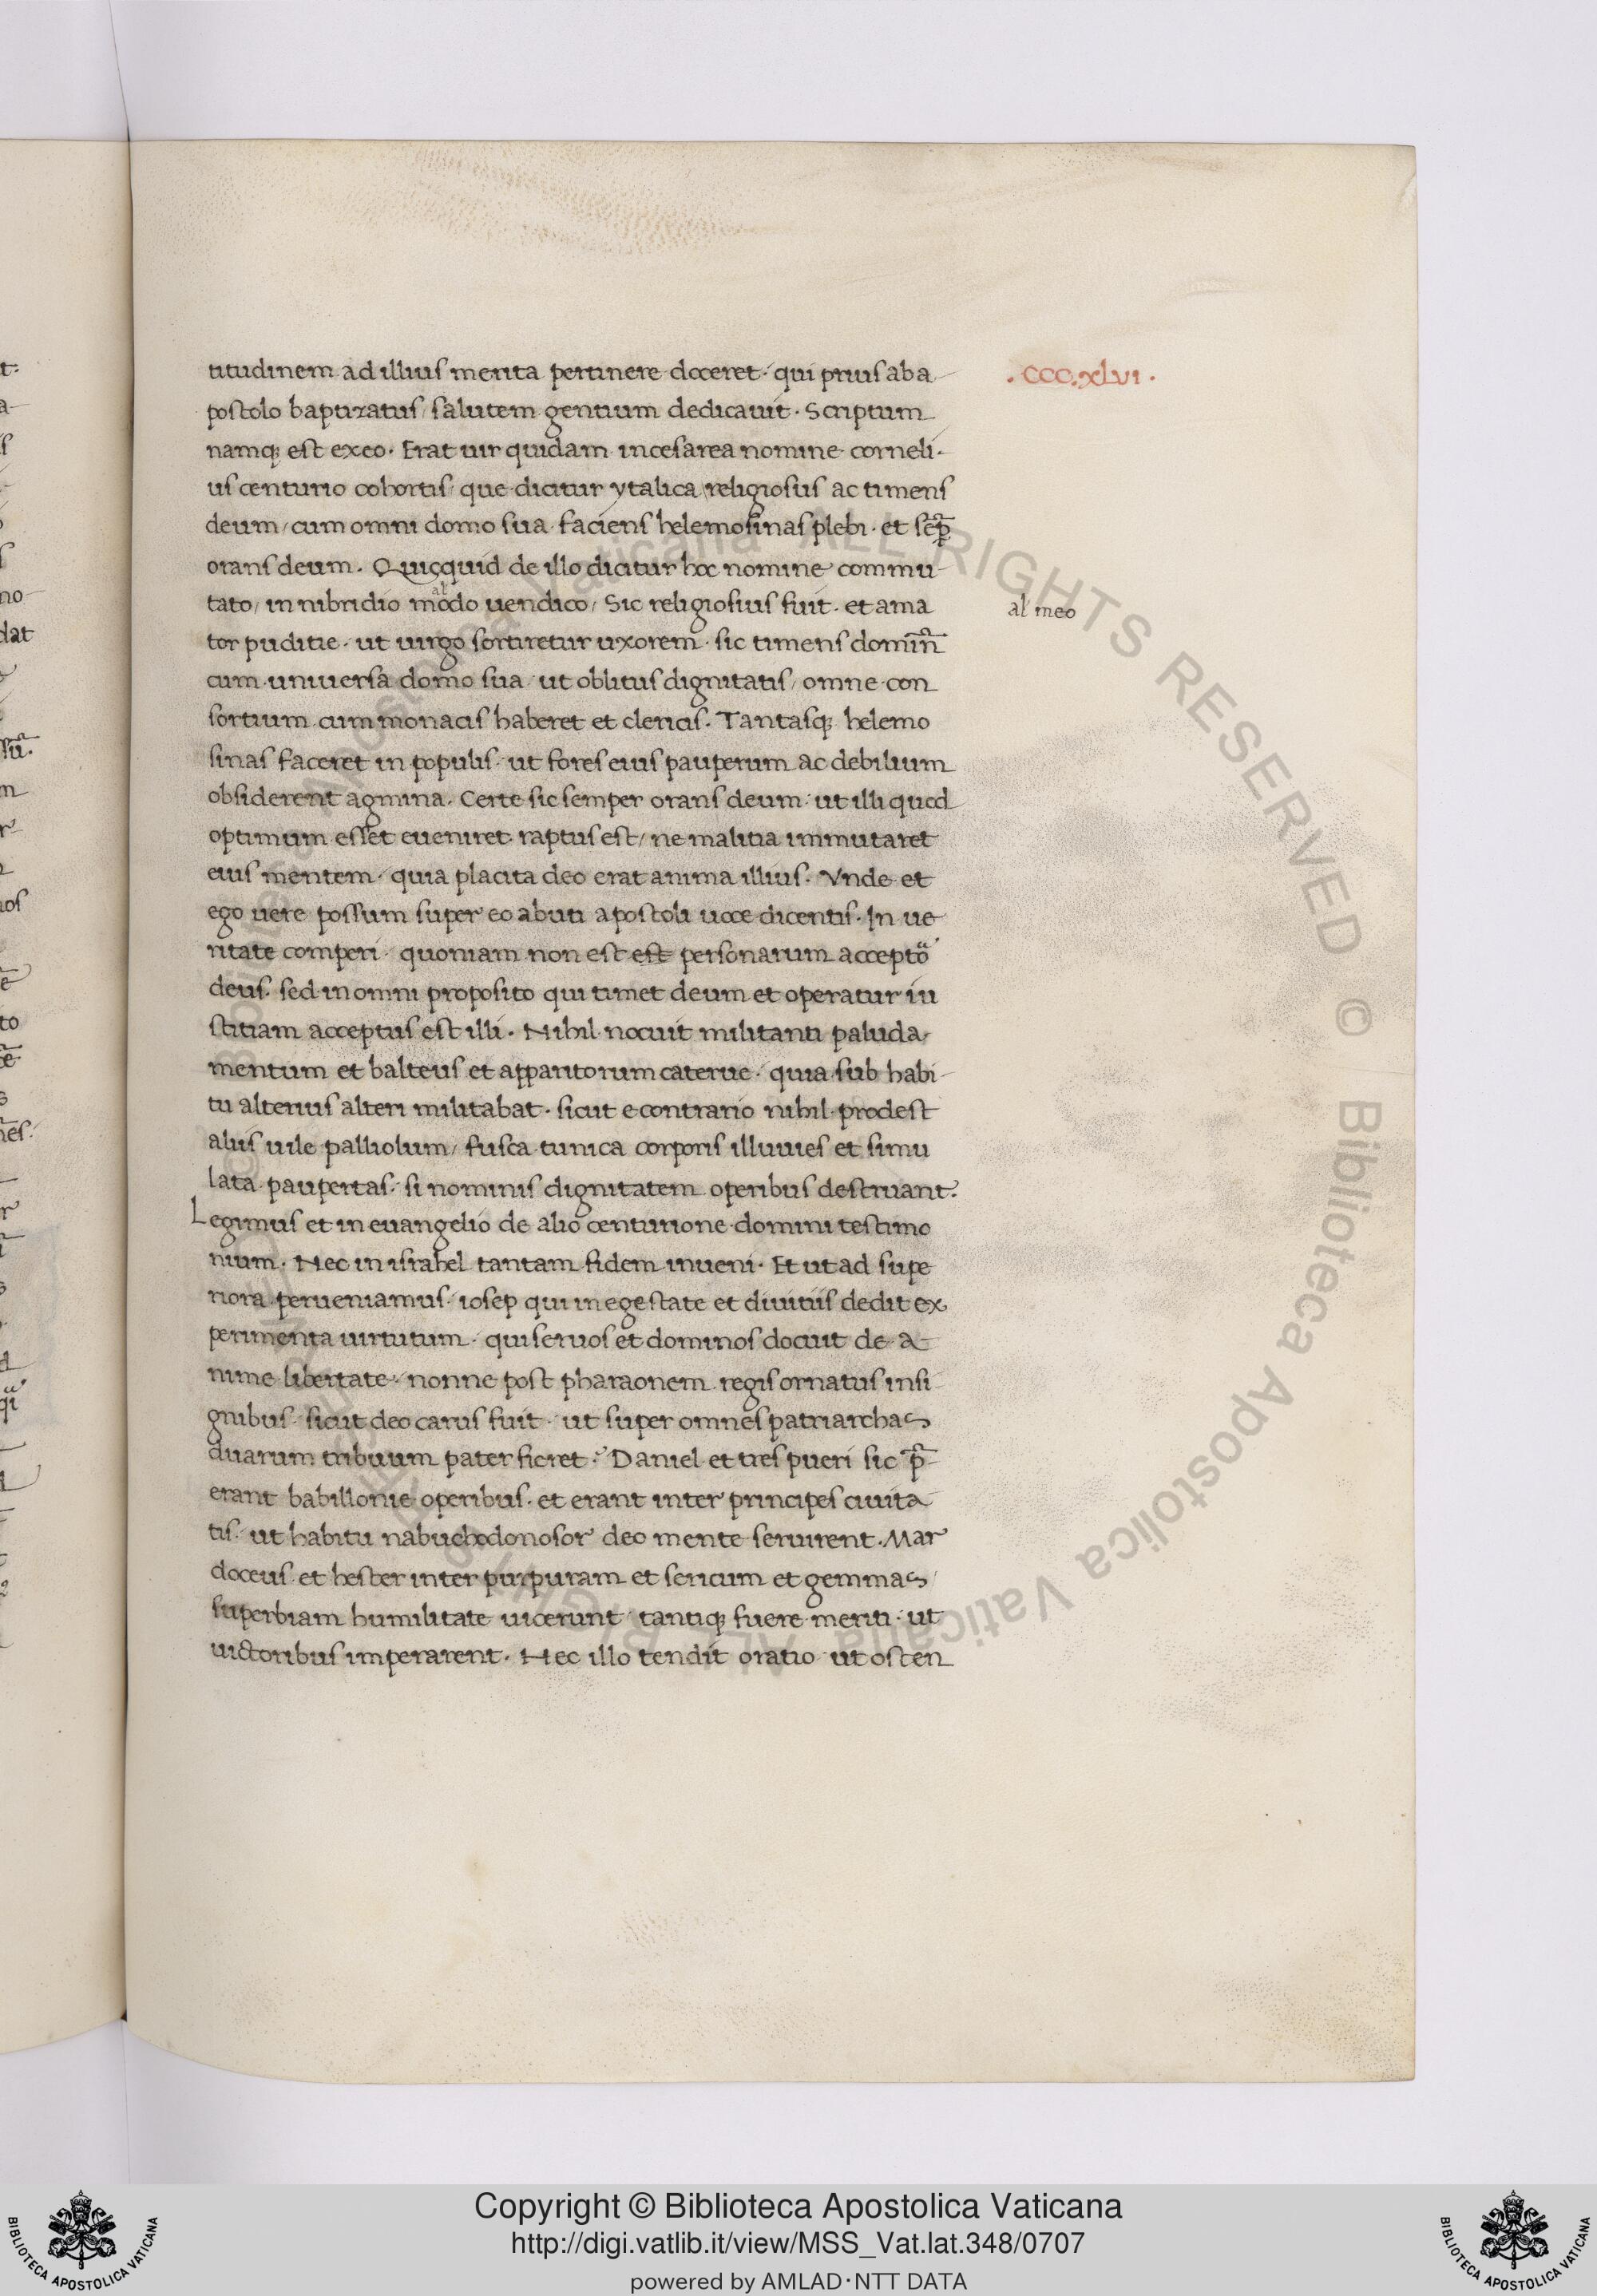 t:
.CCC.xlvi.
titudinem ad illius merita pertinere doceret. qui prius aba
a
postolo baptizatus/ salutem gentium dedicauit. Scriptum
namq; est exeo. Erat uir quidam in cesarea nomine corneli-
us centurio cohortis que dicitur ytalica religiosus ac timens
deum/ cum omni domo sua faciens helemosinas plebi. et sēp
orans deum. Quicquid de illo dicitur hoc nomine commu-
no
al
tato/ in nibridio modo uendico/ Sic religiosius fuit. et ama
al meo
dat
tor puditie. ut uirgo sortiretur uxorem. sic timens domin̄
cum uniuersa domo sua ut oblitus dignitatis/ omne con
sortium cum monacis haberet et clericis. Tantasq; helemo
sinas faceret in populis. ut fores eius pauperum ac debilium
obsiderent agmina. Certe sic semper orans deum. ut illi quod
optimum esset eueniret. raptus est/ ne malitia immutaret
eius mentem. quia placita deo erat anima illius. Vnde et
ios
ego uere possum super eo abuti apostoli uoce dicentis. In ue
ritate comperi. quoniam non est est personarum acceptor
deus. sed in omni proposito qui timet deum et operatur iu
to
stitiam acceptus est illi. Nihil nocuit militanti paluda
mentum et balteus et apparitorum caterue. quia sub habi-
tu alterius alteri militabat. sicut e contrario nihil prodest
aliis uile palliolum/ fusca tunica corporis illuuies et simu
lata paupertas. si nominis dignitatem operibus destruant.
Legimus et in euangelio de alio centurione domini testimo
nium. Nec in israhel tantam fidem inueni. Et ut ad supe
riora perueniamus. iosep qui in egestate et diuitiis dedit ex
perimenta uirtutum. qui seruos et dominos docuit de a
nime libertate. nonne post pharaonem regis ornatus insi
gnibus. sicut deo carus fuit. ut super omnes patriarchas
duarum tribuum pater fieret. Daniel et tres pueri sic p̄-
erant babillonie operibus. et erant inter principes ciuita
tis. ut habitu nabuchodonosor deo mente seruirent. Mar
doceus et hester inter purpuram et sericum et gemmas
superbiam humilitate uicerunt/ tantiq; fuere meriti. ut
uictoribus imperarent. Nec illo tendit oratio ut osten
© Biblioteca Apostolica Vaticana ALL RIGHTS RESERVED © Biblioteca Apostolica Vaticana ALL RIGHTS RESERVED
Copyright © Biblioteca Apostolica Vaticana
http://digi.vatlib.it/view/MSS_Vat.lat.348/0707
powered by AMLAD·NTT DATA
BIBLIOTECA APOSTOLICA VATICANA
BIBLIOTECA APOSTOLICA VATICANA